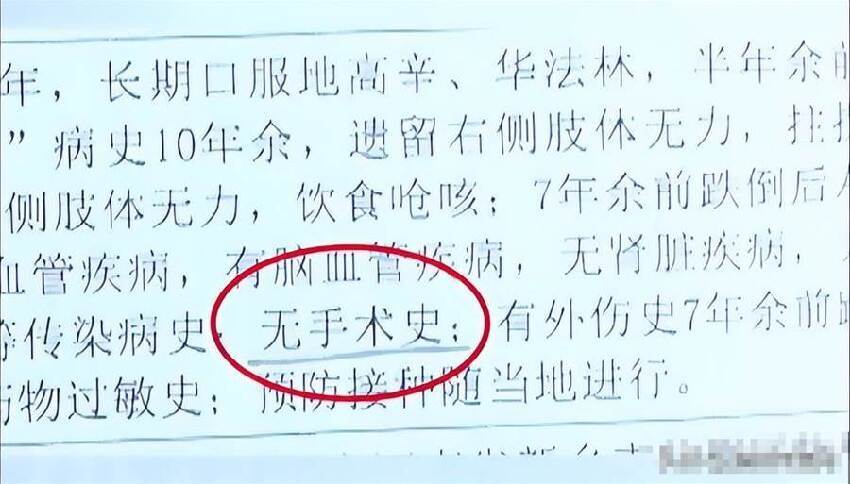 年，长期口服地高辛、华法林，半年余前
”病史10年余，遗留右侧肢体无力，拄
侧肢体无力，饮食呛咳；7年余前跌倒后
血管疾病，有脑血管疾病，无肾脏疾病，
等传染病史；无手术史；有外伤史7年余前跌
物过敏史；预防接种随当地进行。